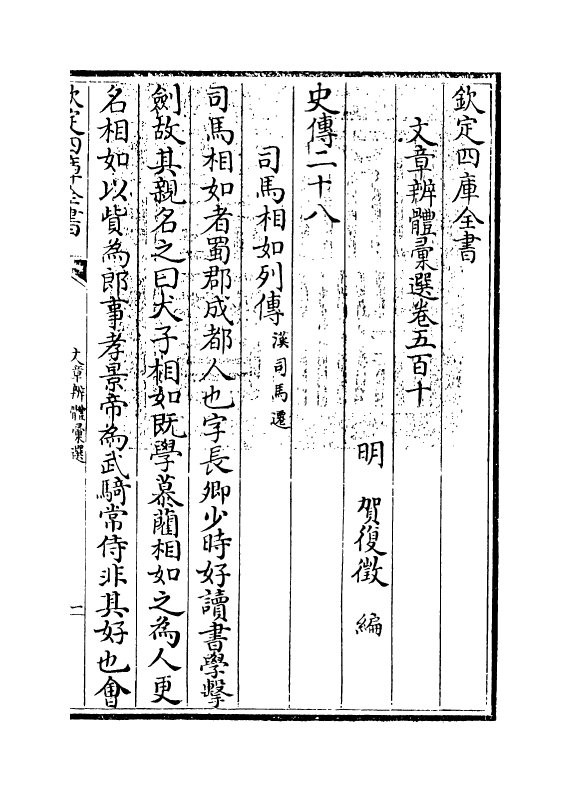 欽定四庫全書
文章辨體彙選卷五百十
明 賀復徵 編
史傳二十八
司馬相如列傳漢司馬遷
司馬相如者蜀郡成都人也字長卿少時好讀書學擊
劍故其親名之曰犬子相如既學慕藺相如之為人更
名相如以貲為郎事孝景帝為武騎常侍非其好也會
欽定四庫全書
文章辨體彙選
一